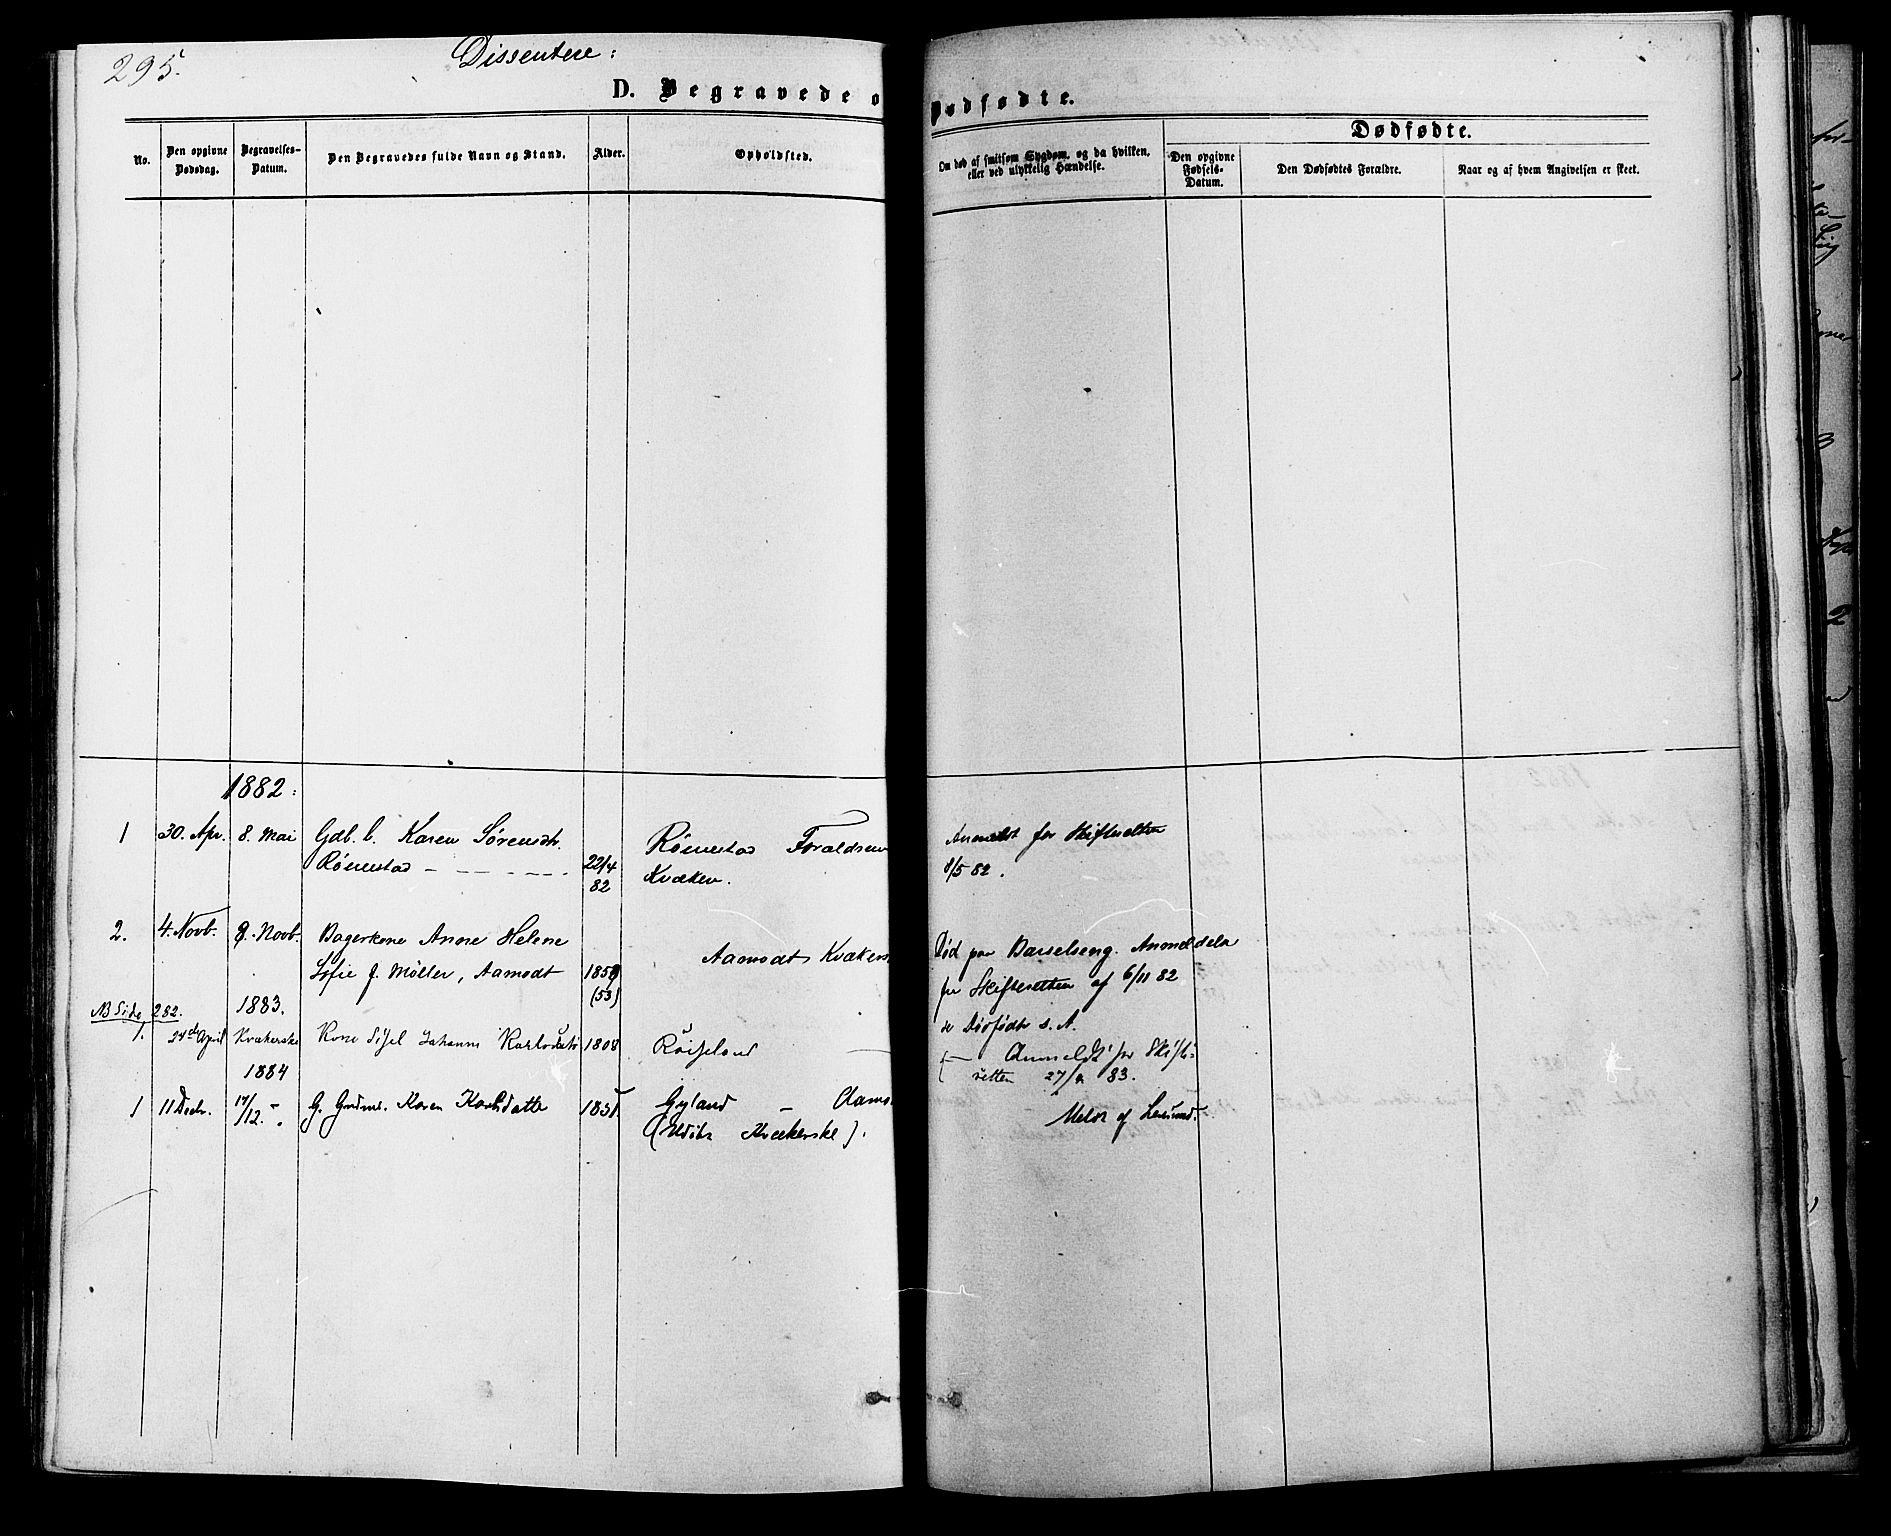 295.
Dissentere:
D. Begravede o
Dødfødte.
No.
Den opgivne Dødsdag.
Begravelses-Datum.
Den Begravedes fulde Navn og Stand.
Alder.
Opholdsted.
Om død af smitsom Sygdom, og da hvilken,
eller ved ulykkelig Hændelse.
Dødfødte.
Den opgivne Fødsels-Datum.
Den Dødfødtes Forældre.
Naar og af hvem Angivelsen er skeet.
1882:
1 30. Apr. 8. Mai Gdb. b. Karen Sørensdtr. Foraldrene Anmeldt for Skifteretten
22/4 82 Kvæker. 8/5 82.
2. 4. Novb. 8. Novb. Bagerkone Anne Helene Aamodt Kvækers. Død paa Barselseng. Anmeldelse
Sofie f. Møller, Aamodt 1859 (53) for Skifteretten af 6/11 82
NB Side 282. 1883. se Dødfødte s. A.
1. 24de April Kvækerske Kone Sisel 1808 Anmeldt for Skifte-
retten 27/4 83.
1884
1 11 Decbr. 17/12 G. Gudms. Karen Karlsdatter Gyland
(Udøbt Kvækerske). Meldt af Lensmd.